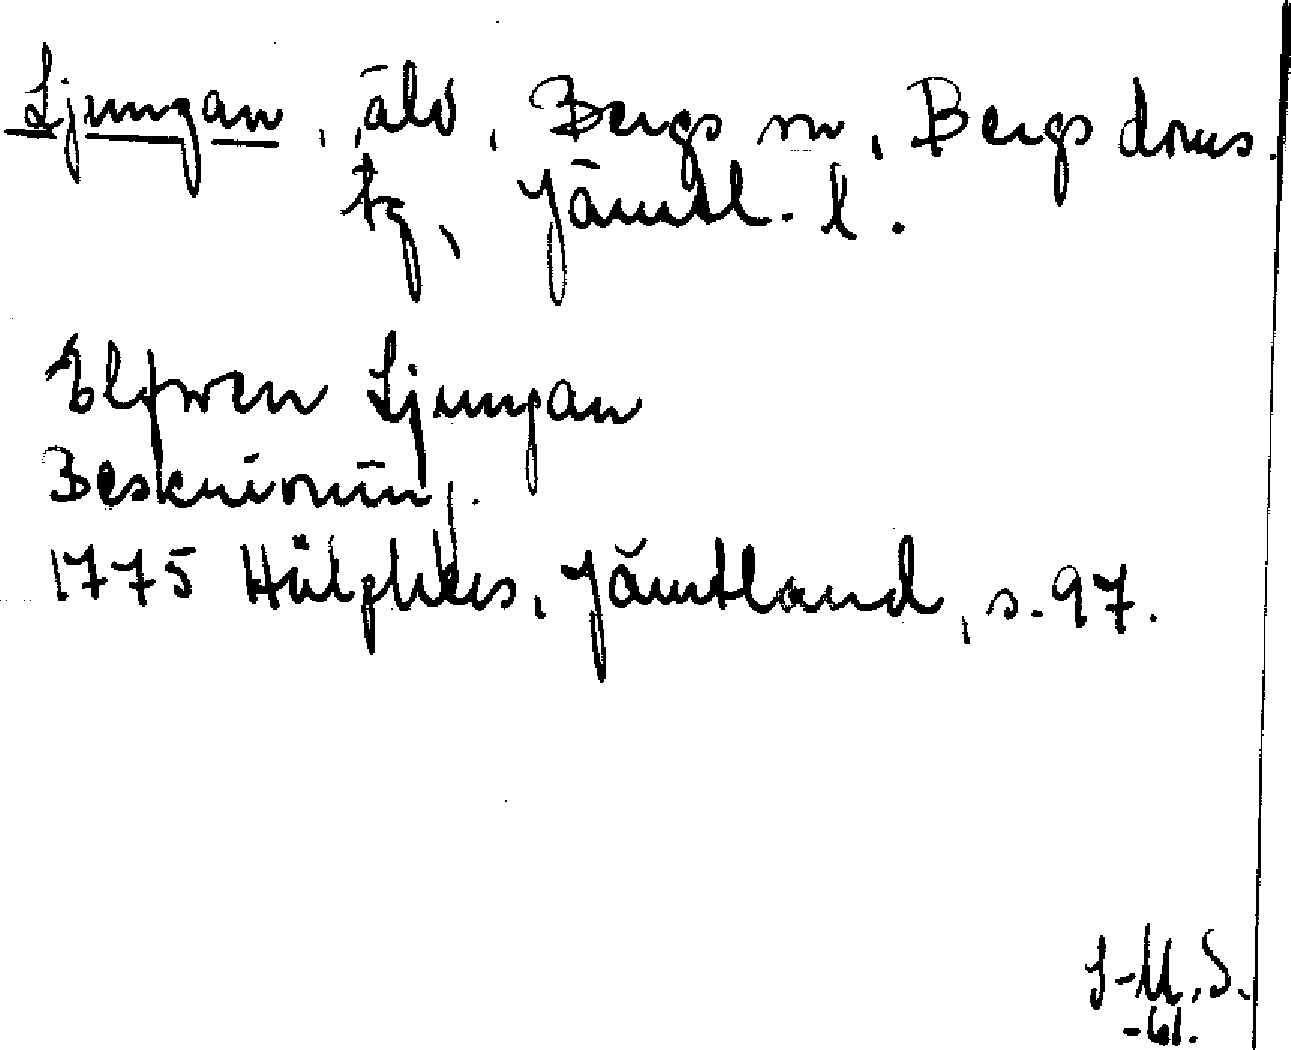 Ljungan, älv, Bergs sn, Bergs doms.
tg, Jämtl. l.
Elfwen Ljungan
Beskrivnin
1775 Hülphers, Jämtland, s. 97.
J-M.S.
-61.